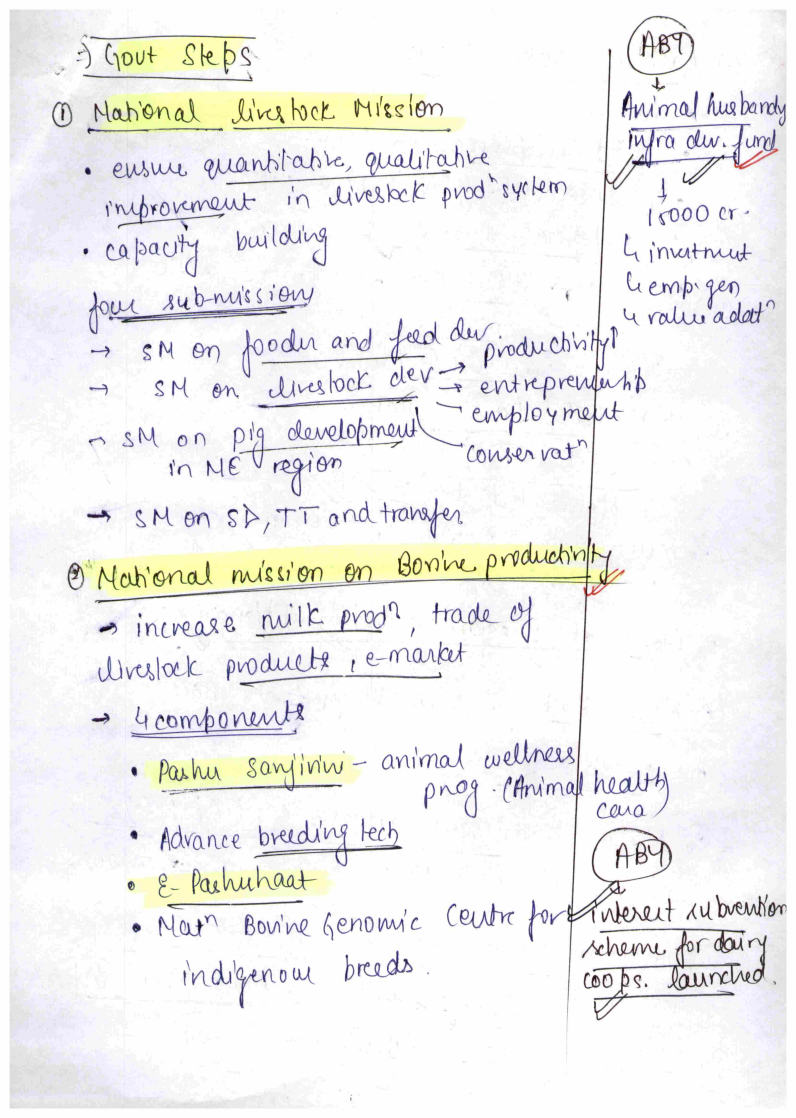 ⇒) Govt Steps
① National livestock Mission
• ensure quantitative, qualitative
improvement in livestock prodⁿ system
• capacity building
four sub-missions
→ SM on fooder and feed dev
→ SM on livestock dev → productivity↑
→ entrepreneurship
employment
conservatⁿ
→ SM on pig development
in NE region
→ SM on SD, TT and transfer
② National mission on Bovine productivity
→ increase milk prodⁿ, trade of
livestock products, e-market
→ 4 components
• Pashu Sanjivini - animal wellness
prog. (Animal health
care)
• Advance breeding tech
• E-Pashuhaat
• Natⁿ Bovine Genomic Centre for
indigenous breeds.
ABY
↓
Animal husbandy
infra dev. fund
↓
15000 cr.
↳ investment
↳ emp. gen
↳ value adatⁿ
ABY
interest subvention
scheme for dairy
coops. launched.